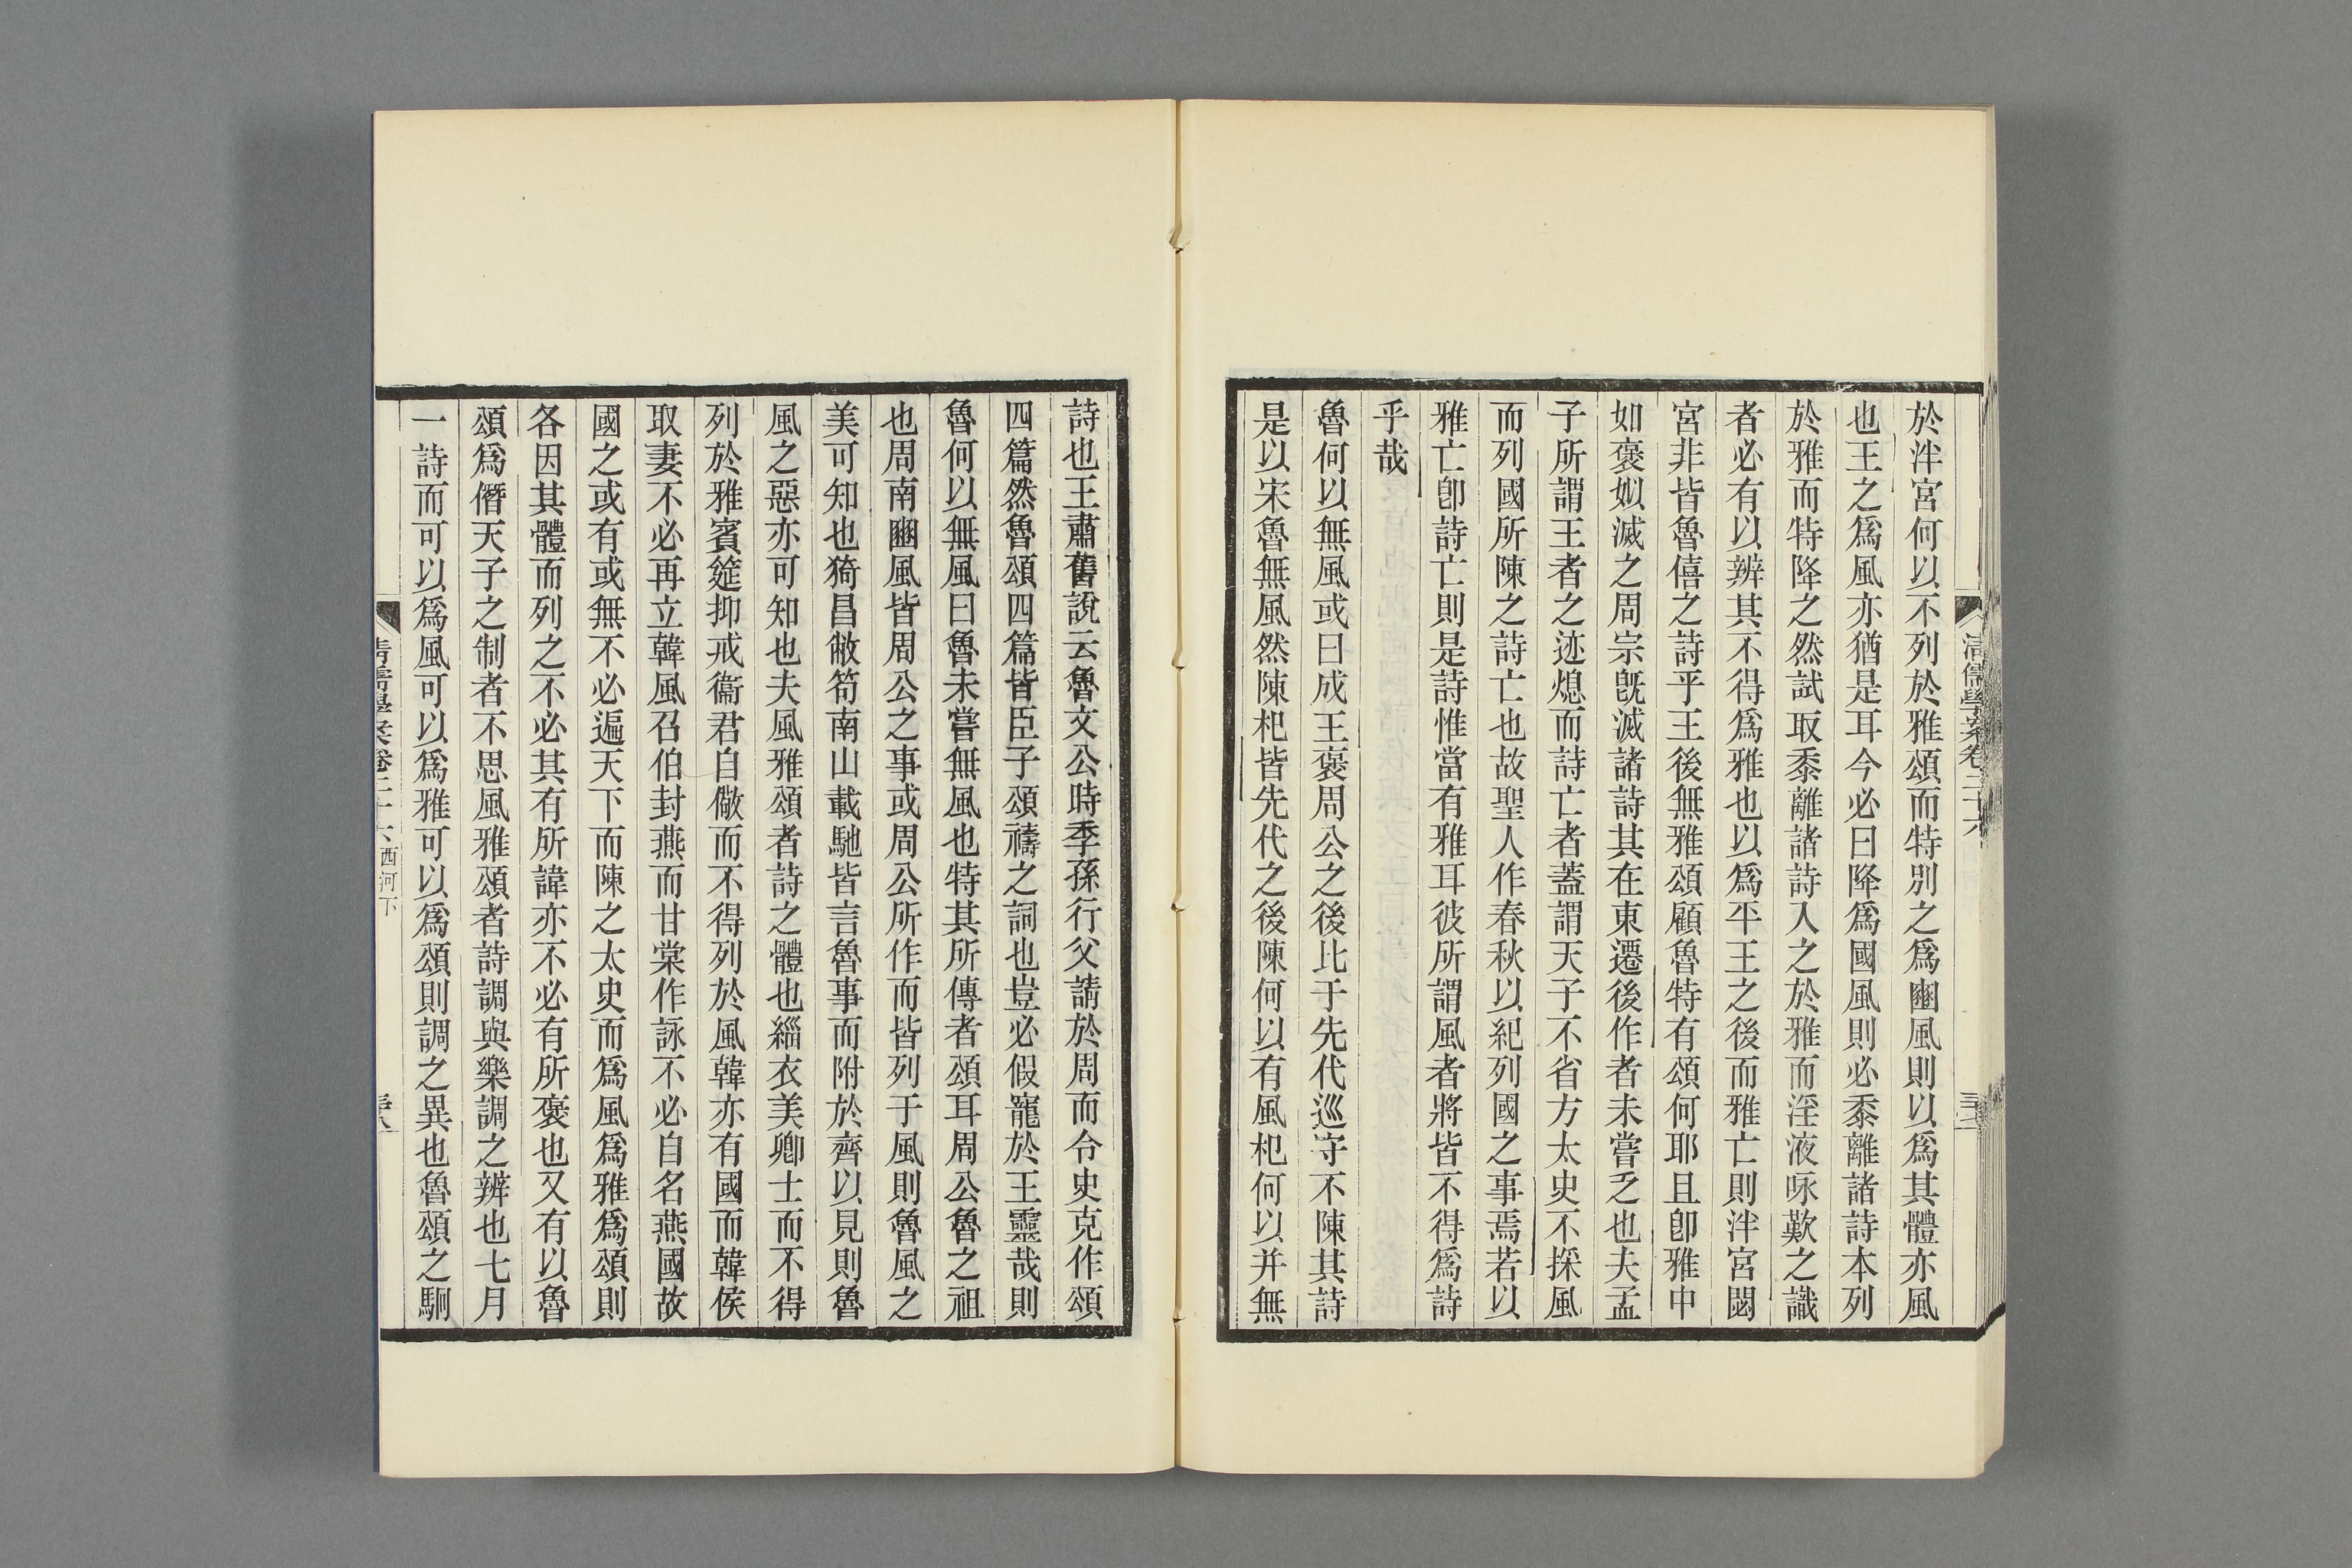 清儒學案卷二十六
於泮宮何以不列於雅頌而特別之爲豳風則以爲其體亦風
也王之爲風亦猶是耳今必曰降爲國風則必黍離諸詩本列
於雅而特降之然試取黍離諸詩入之於雅而淫液咏歎之識
者必有以辨其不得爲雅也以爲平王之後而雅亡則泮宮閟
宮非皆魯僖之詩乎王後無雅頌顧魯特有頌何耶且卽雅中
如褒姒滅之周宗旣滅諸詩其在東遷後作者未嘗乏也夫孟
子所謂王者之迹熄而詩亡者蓋謂天子不省方太史不採風
而列國所陳之詩亡也故聖人作春秋以紀列國之事焉若以
雅亡卽詩亡則是詩惟當有雅耳彼所謂風者將皆不得爲詩
乎哉
魯何以無風或曰成王褒周公之後比于先代巡守不陳其詩
是以宋魯無風然陳杞皆先代之後陳何以有風杞何以并無
詩也王肅舊說云魯文公時季孫行父請於周而令史克作頌
四篇然魯頌四篇皆臣子頌禱之詞也豈必假寵於王靈哉則
魯何以無風曰魯未嘗無風也特其所傳者頌耳周公魯之祖
也周南豳風皆周公之事或周公所作而皆列于風則魯風之
美可知也猗昌敝笱南山載馳皆言魯事而附於齊以見則魯
風之惡亦可知也夫風雅頌者詩之體也緇衣美卿士而不得
列於雅賓筵抑戒衞君自儆而不得列於風韓亦有國而韓侯
取妻不必再立韓風召伯封燕而甘棠作詠不必自名燕國故
國之或有或無不必遍天下而陳之太史而爲風爲雅爲頌則
各因其體而列之不必其有所諱亦不必有所褒也又有以魯
頌爲僭天子之制者不思風雅頌者詩調與樂調之辨也七月
一詩而可以爲風可以爲雅可以爲頌則調之異也魯頌之駉
清儒學案卷二十六西河下